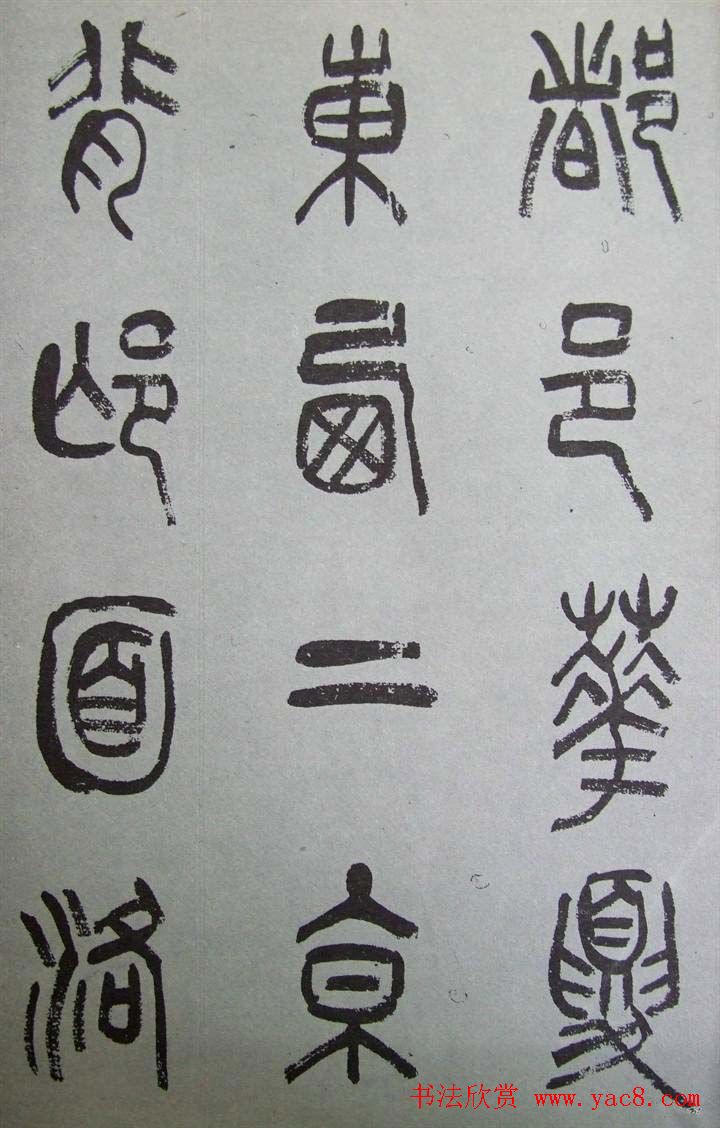 都邑華夏
東西二京
背邙面洛
书法欣赏 www.yac8.com